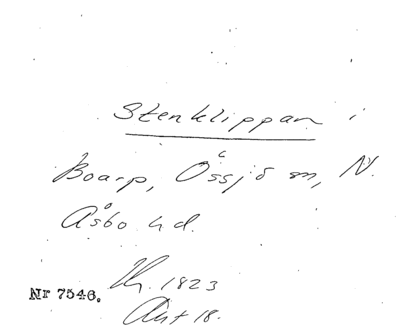 Stenklippan i
Boarp, Össjö sn, N.
Åsbo hd.
1823
Nr 7546.
18.